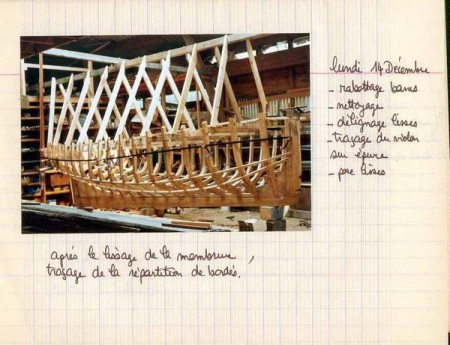 lundi 14 Décembre
- rabottage barres
- nettoyage
- délignage lisses
- traçage du violon
sur épure
- pose lisses
après le lissage de la membrure,
traçage de la répartition de bordés.